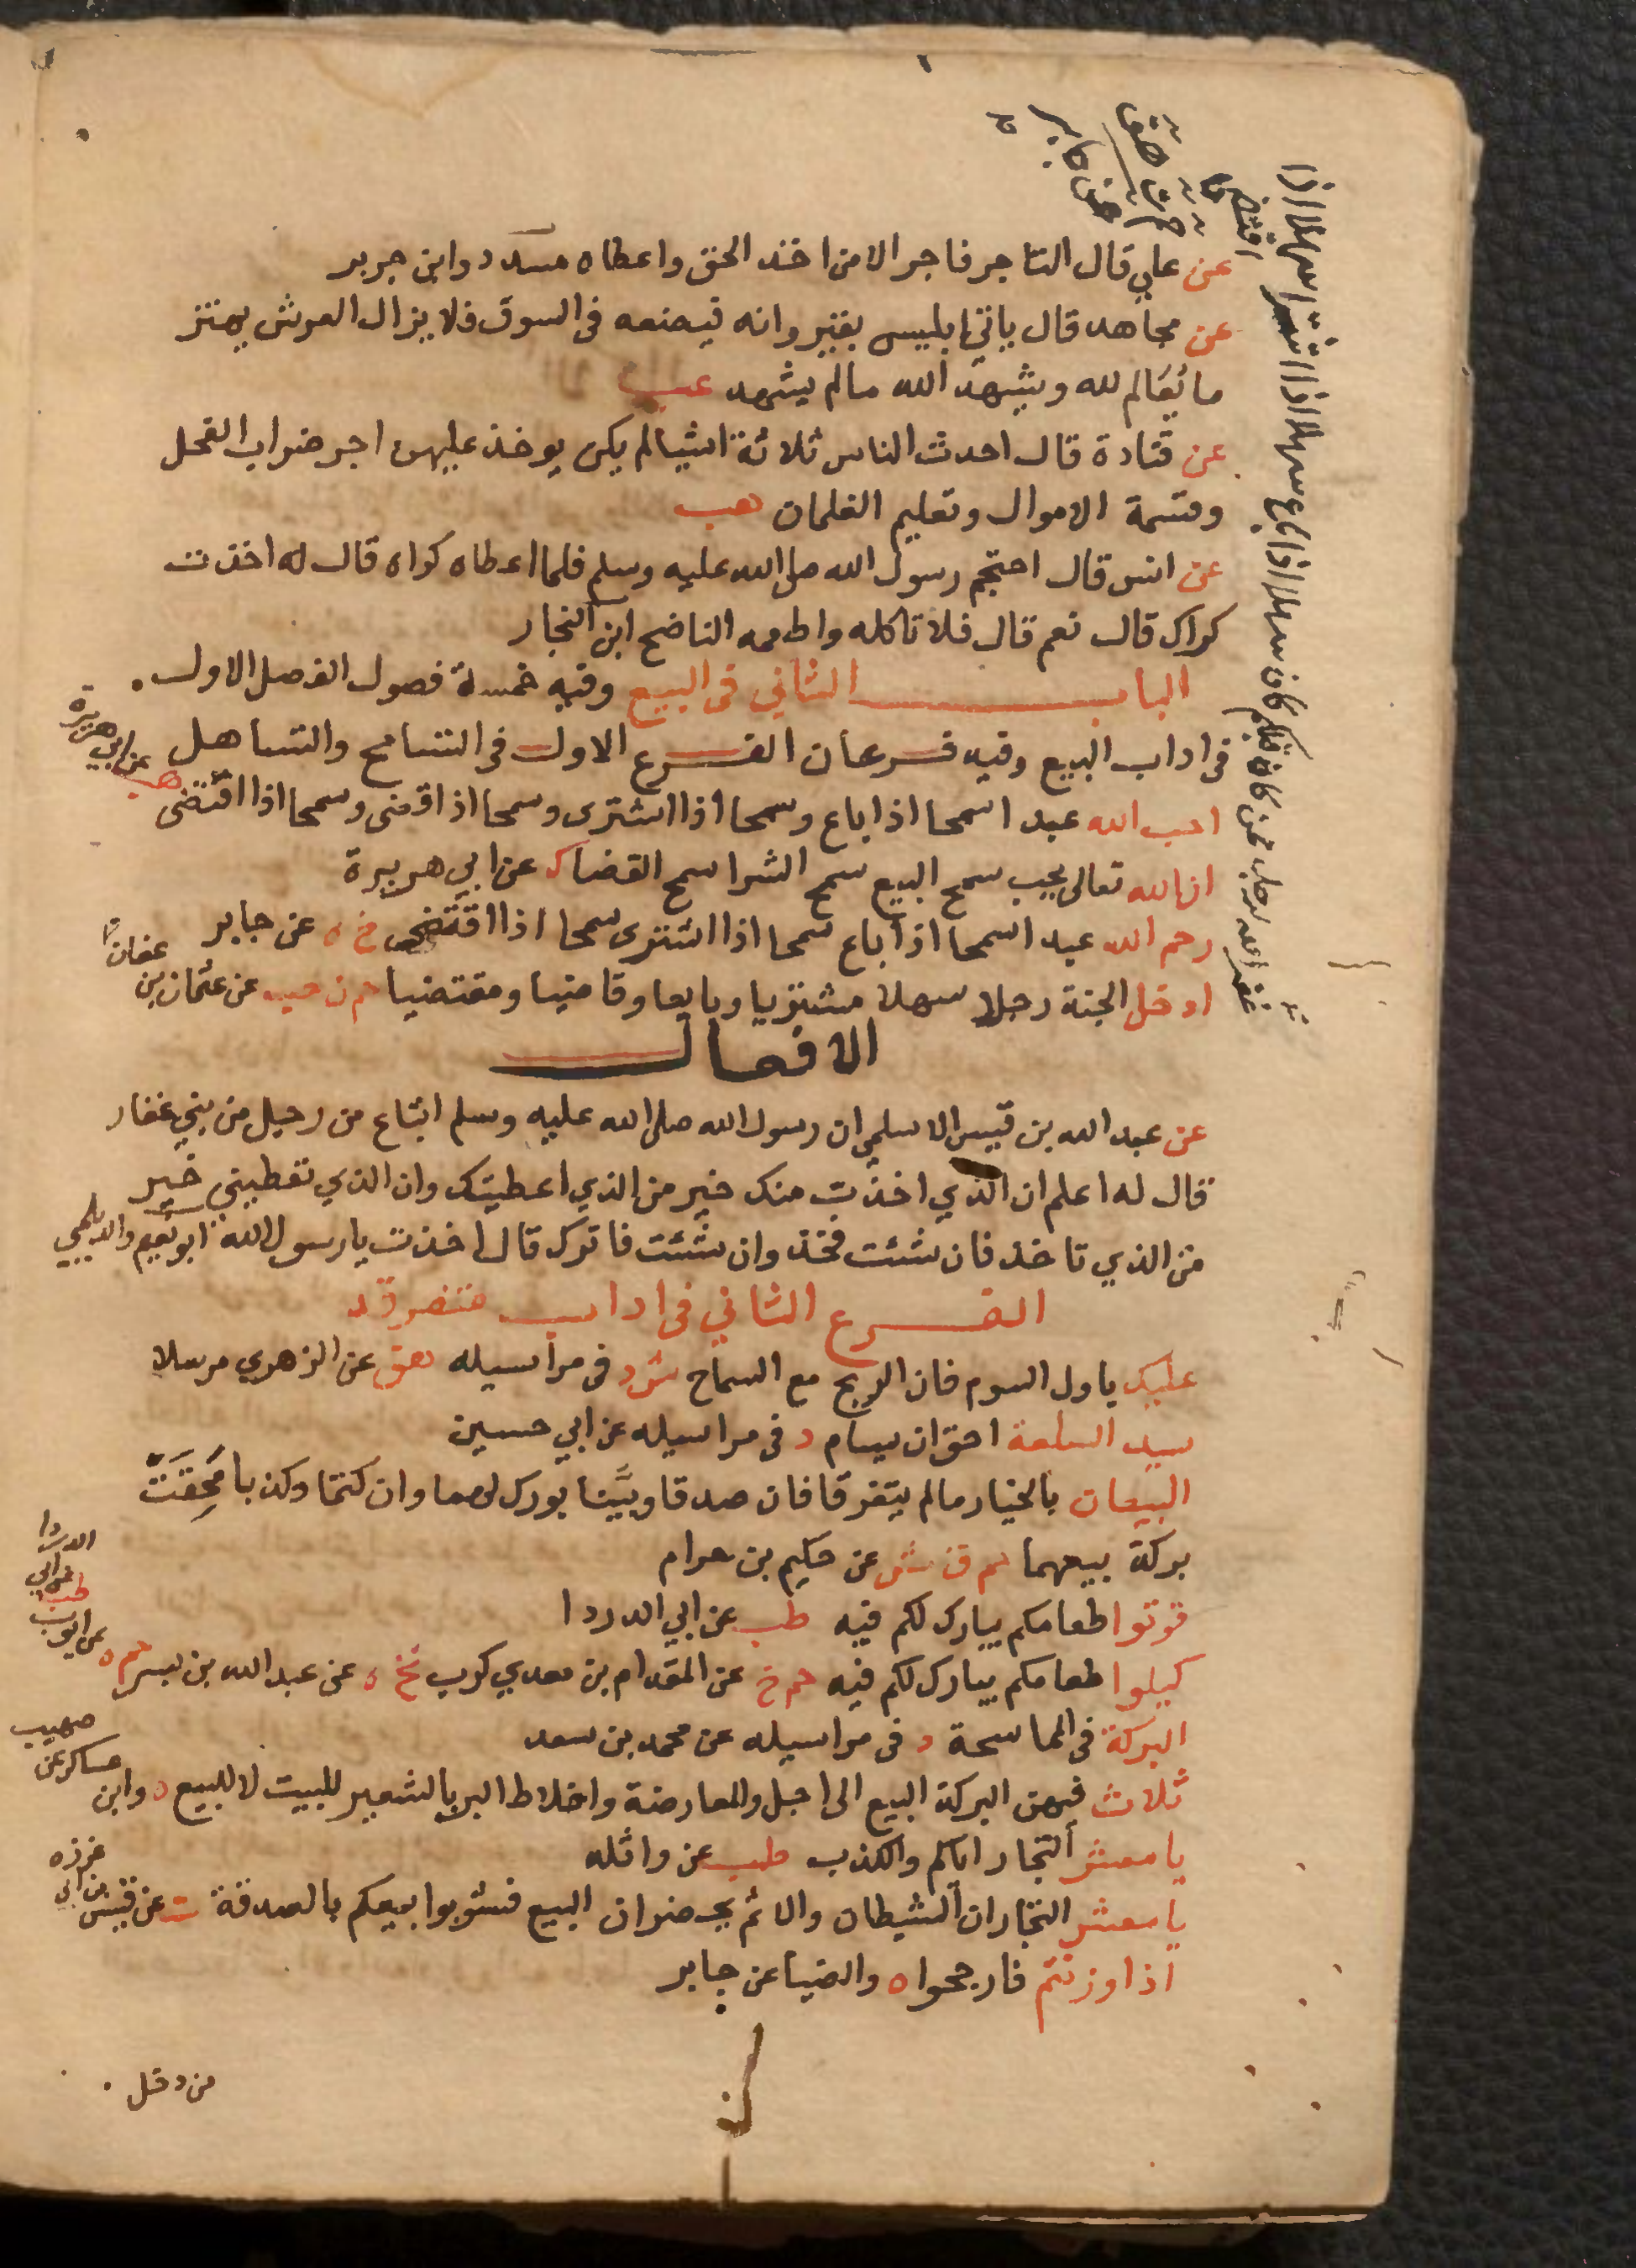 عن علي قال التاجر فاجر الا من اخذ الحق واعطاه مسدد وابن جرير
عن مجاهد قال ياتي ابليس بقيروانه فيضعه في السوق فلا يزال العرش يهتز
مما يعلم الله ويشهد الله مالم يشهد عب
عن قتادة قال احدث الناس ثلاثة اشيا لم يكن يوخذ عليهن اجر ضراب الفحل
وقسمة الاموال وتعليم الغلمان هب
عن انس قال احتجم رسول الله صلى الله عليه وسلم فلما اعطاه كراه قال له اخذت
كراك قال نعم قال فلا تاكله واطعمه الناضح ابن النجار
الباب الثاني في البيع وفيه خمسة فصول الفصل الاول
في اداب البيع وفيه فرعان الفرع الاول في التسامح والتساهل
احب الله عبدا سمحا اذا باع وسمحا اذا اشترى وسمحا اذا قضى وسمحا اذا اقتضى هب عن ابي هريرة
ان الله تعالى يحب سمح البيع سمح الشرا سمح القضا ك عن ابي هريرة
رحم الله عبدا سمحا اذا باع سمحا اذا اشترى سمحا اذا اقتضى خ ه عن جابر
ادخل الجنة رجلا سهلا مشتريا وبايعا وقاضيا ومقتضيا حم ن هب عن عثمان بن عفان
الافعال
عن عبد الله بن قيس الاسلمي ان رسول الله صلى الله عليه وسلم ابتاع من رجل من بني غفار
قال له اعلم ان الذي اخذت منك خير من الذي اعطيتك وان الذي تعطيني خير
من الذي تاخذ فان شئت فخذ وان شئت فاترك قال اخذت يا رسول الله ابو نعيم والديلمي
الفرع الثاني في اداب متفرقة
عليك باول السوم فان الربح مع السماح ش د في مراسيله هق عن الزهري مرسلا
سيد السلعة احق ان يسام د في مراسيله عن ابي حسين
البيعان بالخيار مالم يتفرقا فان صدقا وبيَّنا بورك لهما وان كتما وكذبا مُحِقَتْ
بركة بيعهما حم ق ش عن حكيم بن حزام
قوتوا طعامكم يبارك لكم فيه طب عن ابي الدردا
كيلوا طعامكم يبارك لكم فيه حم خ عن المقدام بن معدي كرب تخ ه عن عبد الله بن بسر حم ه عن ايوب طب عن ابي الدردا
البركة في المماسحة د في مراسيله عن محمد بن سعد
ثلاث فيهن البركة البيع الى اجل والمعارضة واخلاط البر بالشعير للبيت لا للبيع ه وابن عساكر عن صهيب
يا معشر التجار اياكم والكذب طب عن واثله
يا معشر التجار ان الشيطان والاثم يحضران البيع فشوبوا بيعكم بالصدقة ت عن قيس بن ابي غرزه
اذا وزنتم فارجحوا ه والضيا عن جابر
من دخل
غفر الله لرجل ممن كان قبلكم كان سهلا اذا باع سهلا اذا اشترى سهلا اذا
اقتضى
حم ت هق
عن جابر